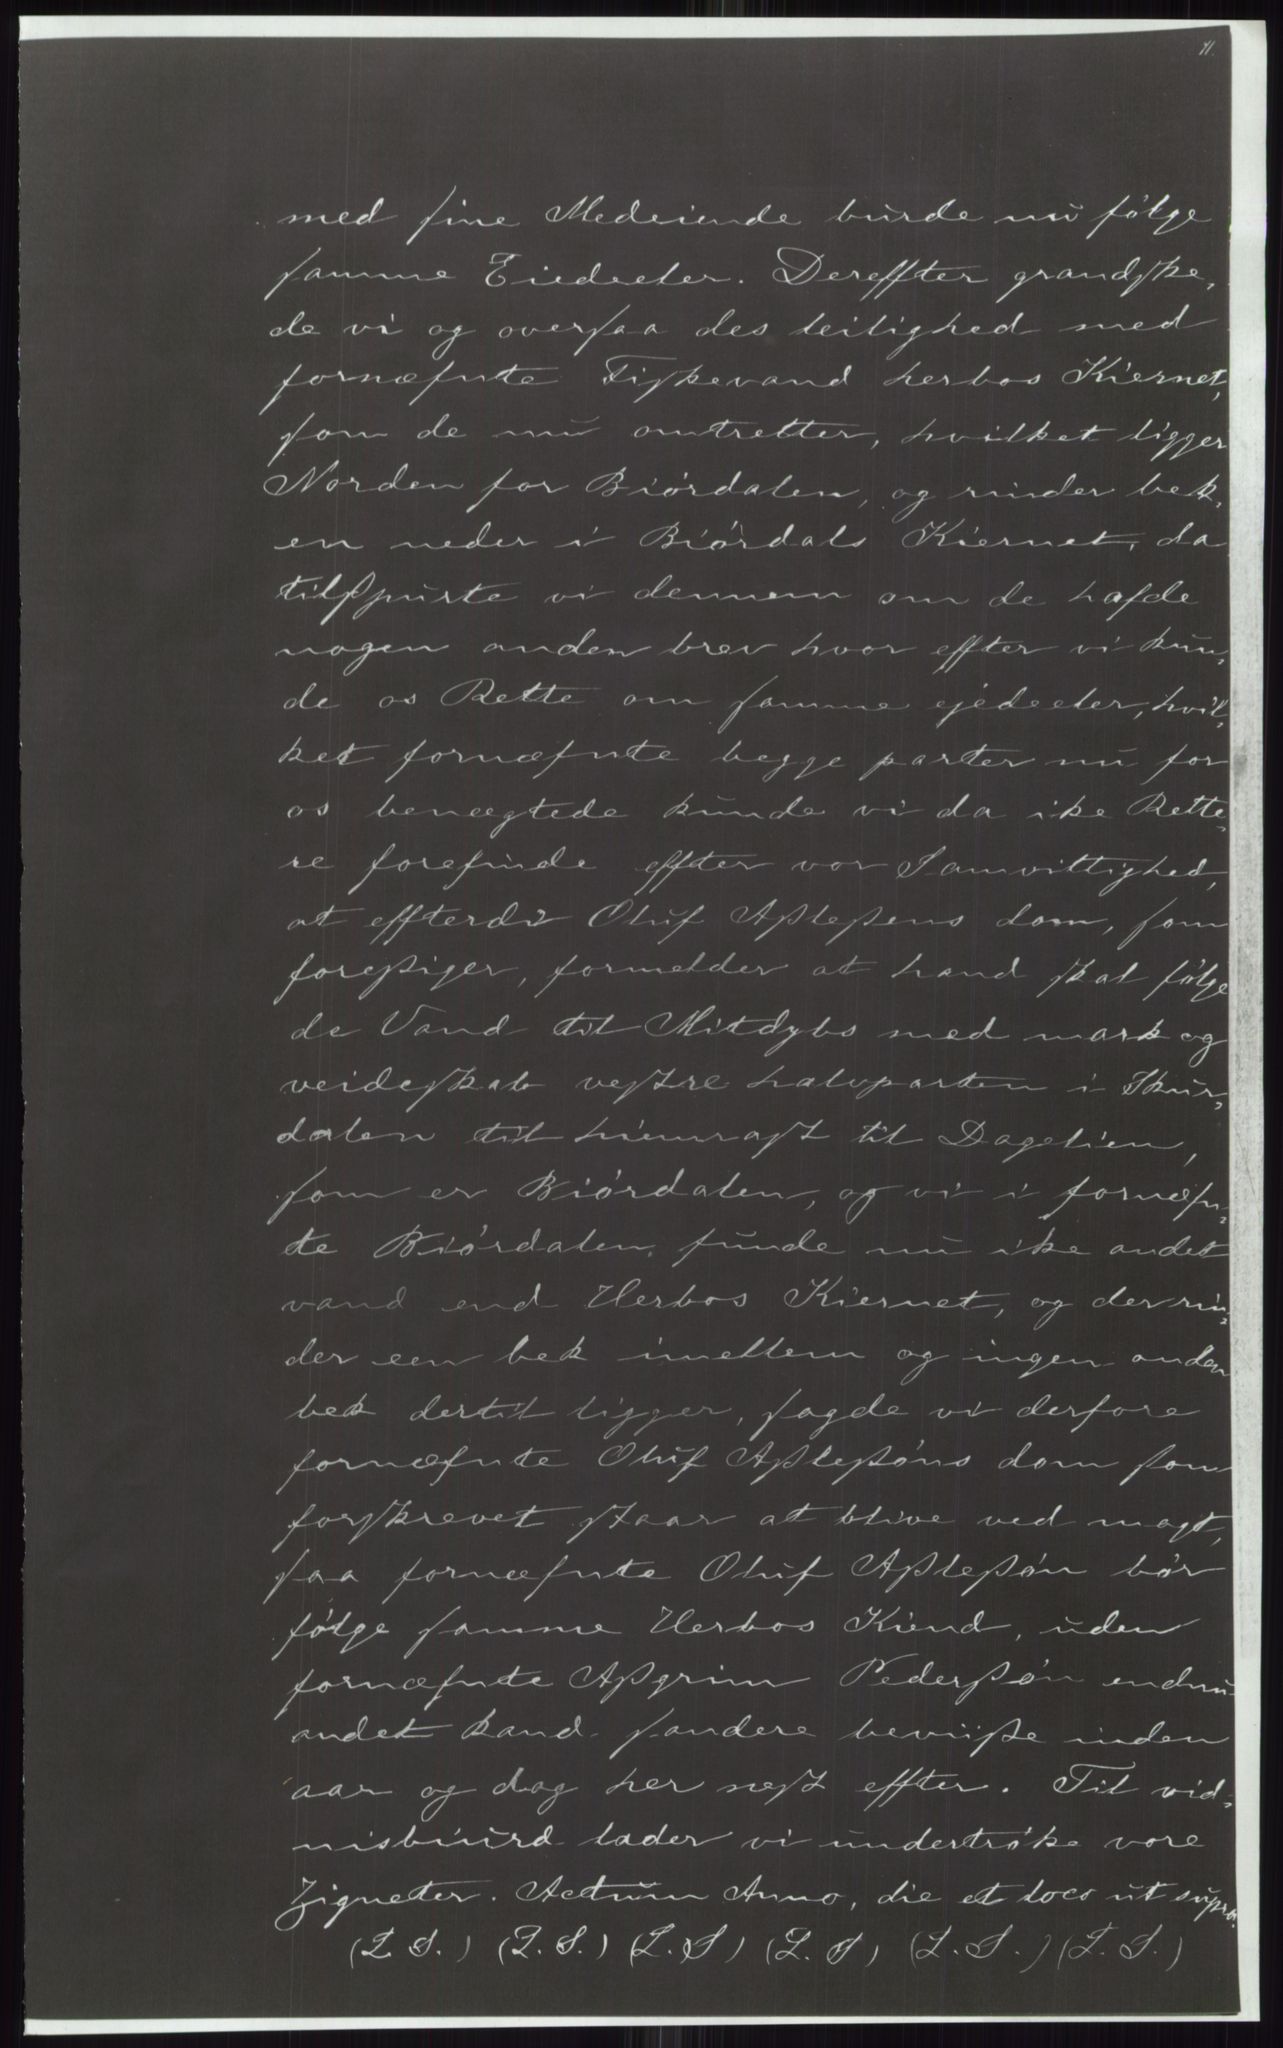 11.
med sine Medeiende burde nu følge
samme Eiedeeler. Dereffter grandske,
de vi og oversaa des leilighed med
fornæfnte Fiskevand herbos Kiernet,
som de nu omtretter, hvilket ligger
Norden for Biørdalen, og rinder bek,
en neder i Biørdals Kiernet, da
tilspurte vi dennem om de hafde
nogen anden brev hvor effter vi kun,
de os Rette om samme ejedeeler, hvil,
ket fornæfnte begge parter nu for
os benægtede kunde vi da ike Rette,
re forefinde effter vor Samvittighed,
at effterdi Oluf Aslesens dom, som
foresiger, formelder at hand skal følge
de Vand til Mitdybs med mark og
veideskab vestre halvparten i Skur,
dalen til hiemrast til Dagelien,
som er Biørdalen, og vi i fornæfn,
te Biørdalen, funde nu ike andet
vand end Herbos Kiernet, og der rin,
der een bek imellem og ingen anden
bek dertil ligger, sagde vi derfore
fornæfnte Oluf Aslesøns dom som
forskrevet staar at blive ved magt,
saa fornæfnte Oluf Aslesøn bør
følge samme Herbos Kiend, uden
fornæfnte Asgrim Pedersøn endnu
andet kand sandere beviise inden
aar og dag her nest effter. Til vid,
nisbiurd lader vi undertrøke vore
Zigneter. Actum Anno, die et loco ut supra.
(L. S.) (L. S.) (L. S) (L. S) (L. S.) (L. S.)